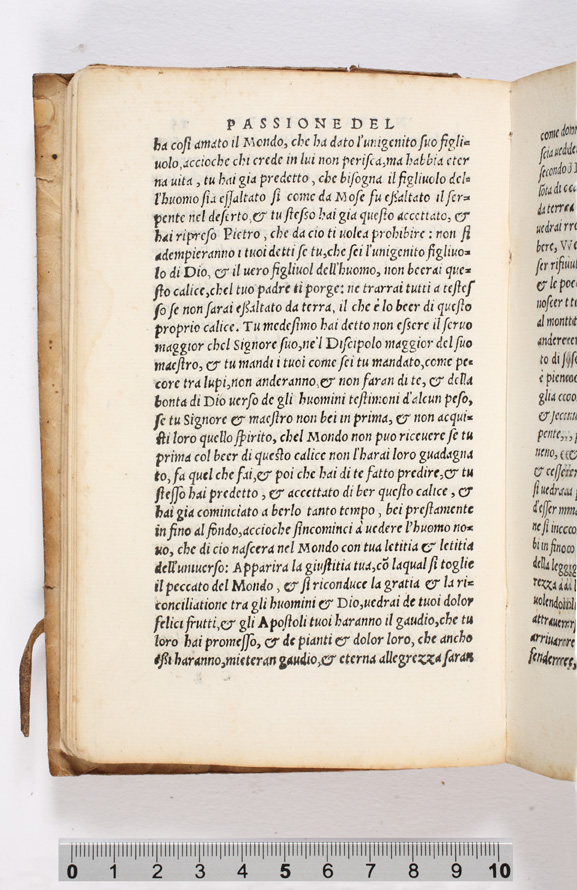 PASSIONE DEL
ha cosi amato il Mondo, che ha dato l'unigenito suo figli=
uolo, accioche chi crede in lui non perisca, ma habbia eter
na uita, tu hai gia predetto, che bisogna il figliuolo del=
l'huomo sia essaltato si come da Mose fu essaltato il ser=
pente nel deserto, & tu stesso hai gia questo accettato, &
hai ripreso Pietro, che da cio ti uolea prohibire: non si
adempieranno i tuoi detti se tu, che sei l'unigenito figliuo=
lo di Dio, & il uero figliuol dell'huomo, non beerai que=
sto calice, chel tuo padre ti porge: ne trarrai tutti a testes
so se non sarai essaltato da terra, il che è lo beer di questo
proprio calice. Tu medesimo hai detto non essere il seruo
maggior chel Signore suo, ne'l Discipolo maggior del suo
maestro, & tu mandi i tuoi come sei tu mandato, come pe=
core tra lupi, non anderanno, & non faran di te, & della
bonta di Dio uerso de gli huomini testimoni d'alcun peso,
se tu Signore & maestro non bei in prima, & non acqui=
sti loro quello spirito, chel Mondo non puo riceuere se tu
prima col beer di questo calice non l'harai loro guadagna
to, fa quel che fai, & poi che hai di te fatto predire, & tu
stesso hai predetto, & accettato di ber questo calice, &
hai gia cominciato a berlo tanto tempo, bei prestamente
in fino al fondo, accioche s'incominci à uedere l'huomo no=
uo, che di cio nascera nel Mondo con tua letitia & letitia
dell'uniuerso: Apparira la giustitia tua, cõ laqual si toglie
il peccato del Mondo, & si riconduce la gratia & la ri=
conciliatione tra gli huomini & Dio, uedrai de tuoi dolor
felici frutti, & gli Apostoli tuoi haranno il gaudio, che tu
loro hai promesso, & de pianti & dolor loro, che ancho
essi haranno, mieteran gaudio, & eterna allegrezza saran
come
secondo
da terra
uedrai
bere,
& le
al
to di
&
neno,
&
d'esser
ne si
bi in
della
0 1 2 3 4 5 6 7 8 9 10